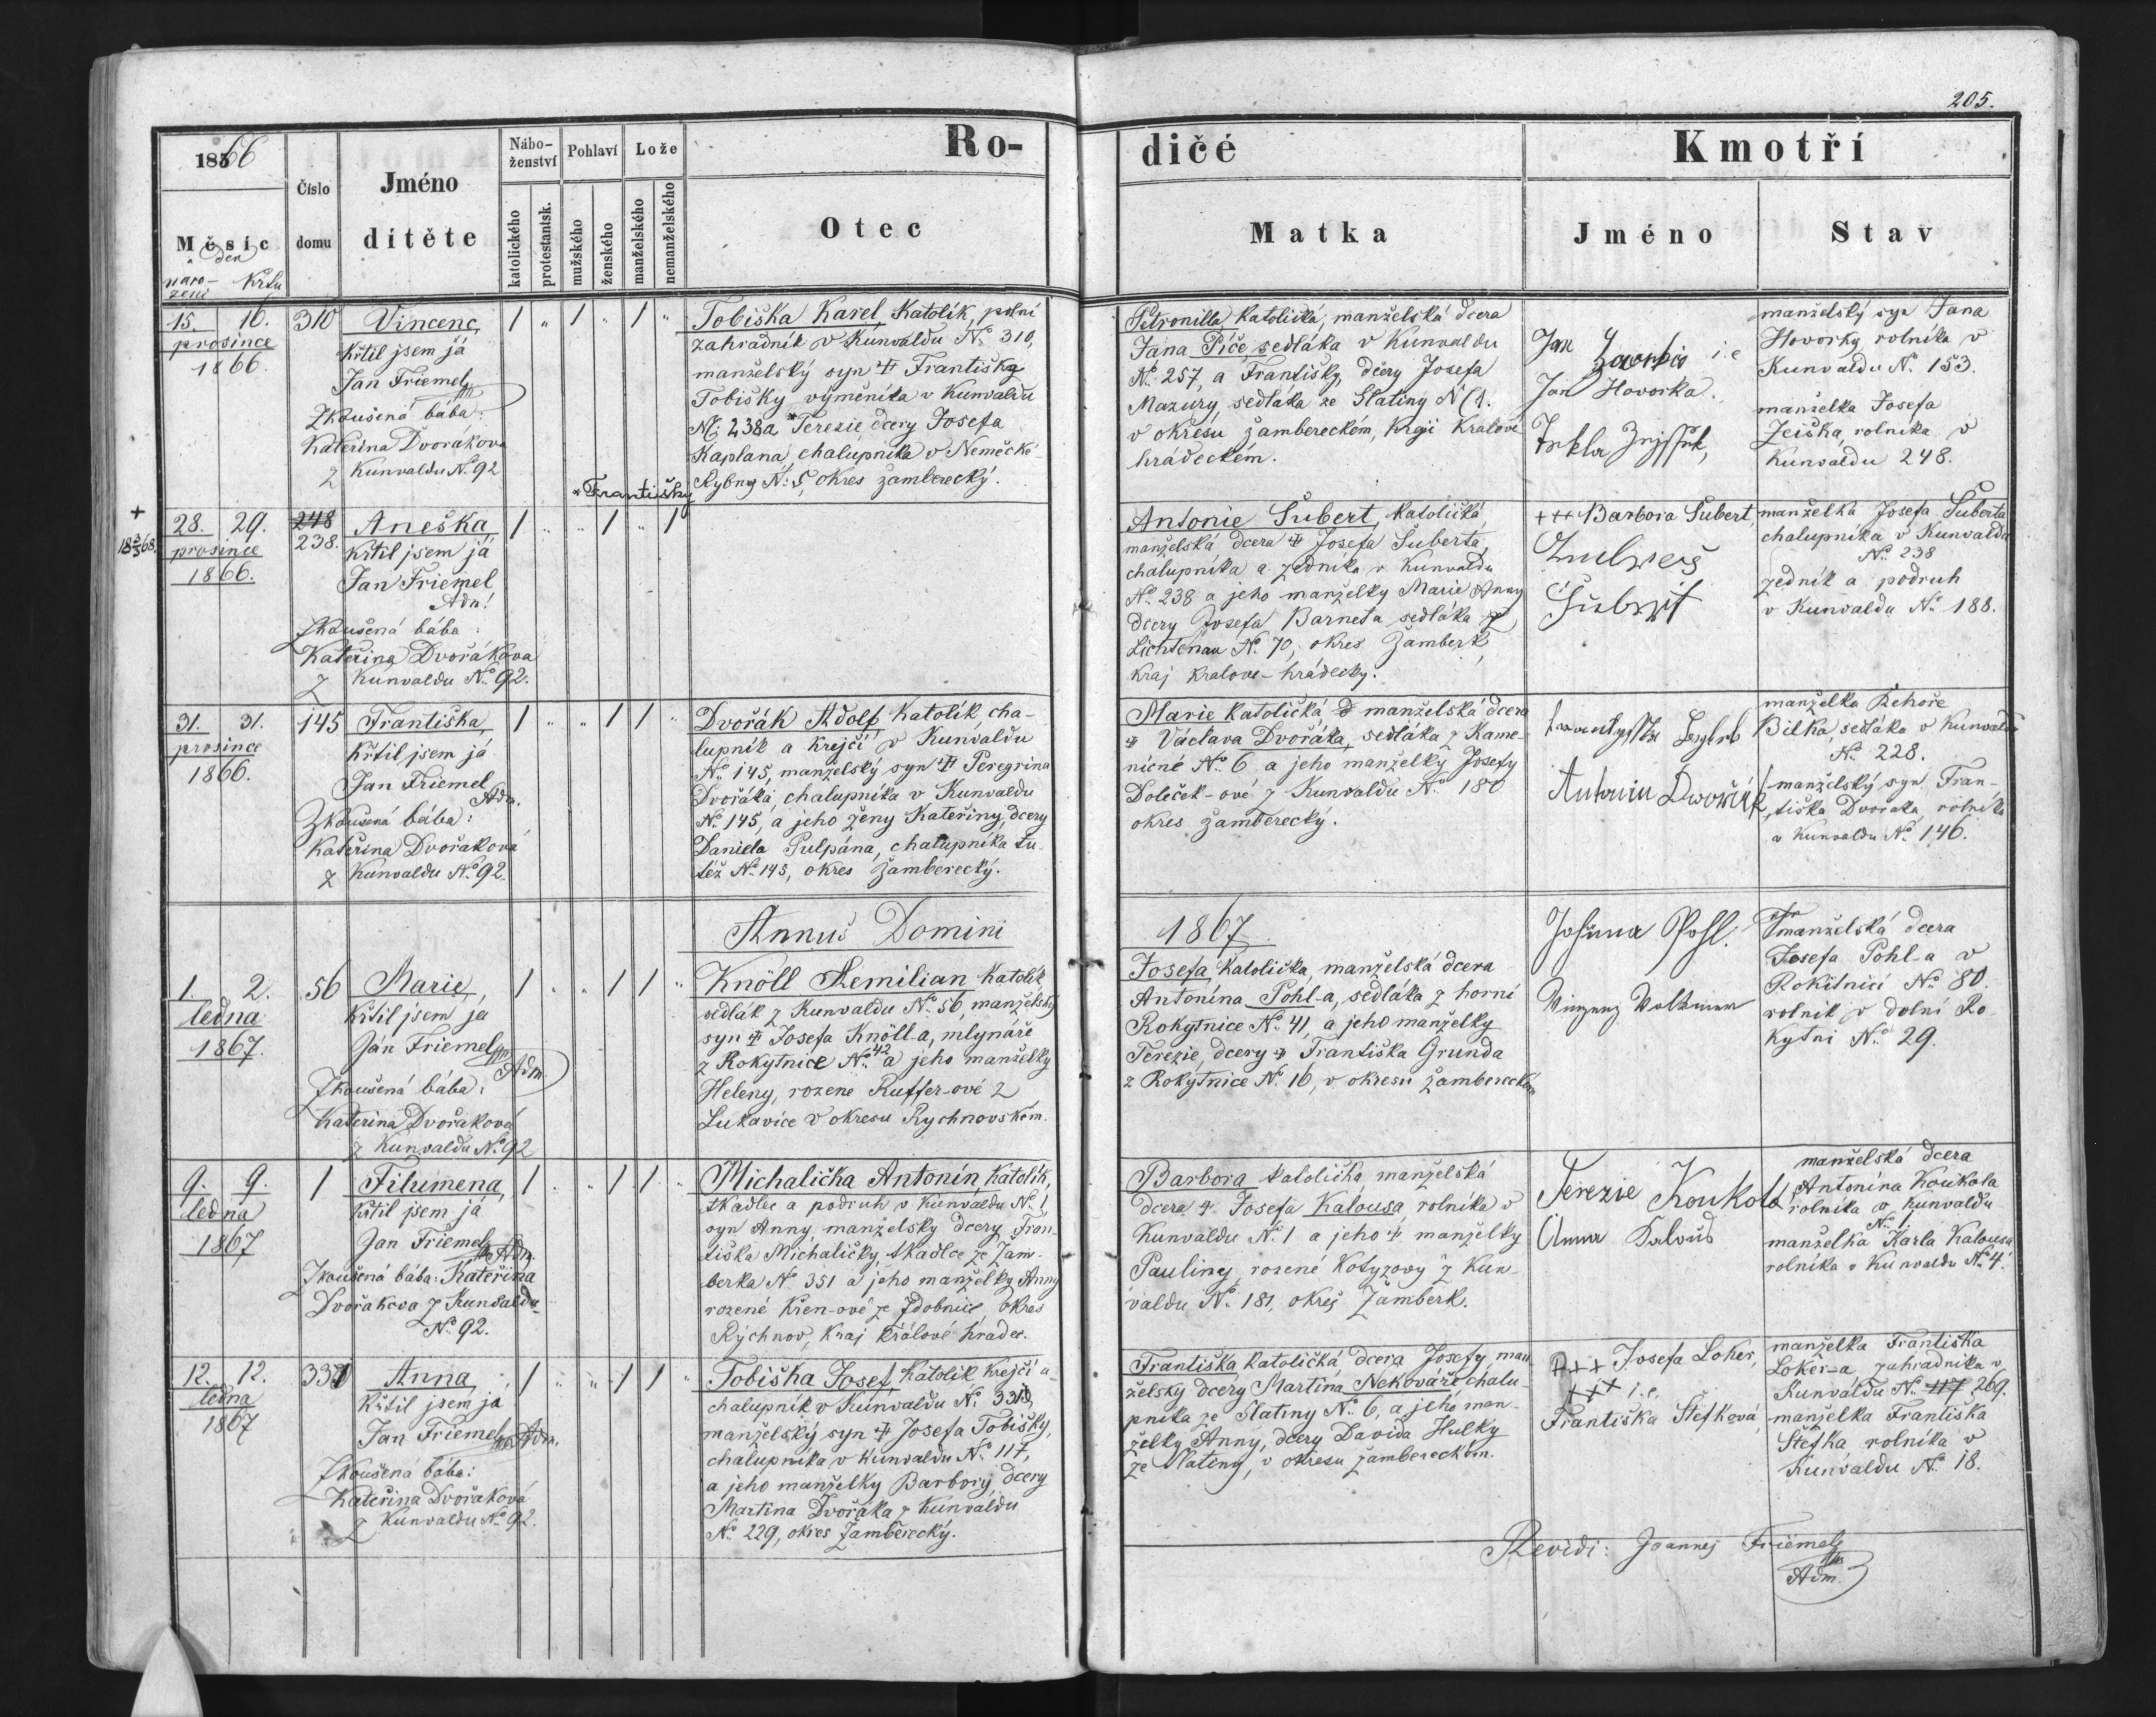 205.
1866
Měsíc
a den
naro-
zení
Křtu
Číslo
domu
Jméno
dítěte
Nábo-
ženství
katolického
protestantsk.
Pohlaví
mužského
ženského
Lože
manželského
nemanželského
Ro-
dičé
Otec
Matka
Kmotří
Jméno
Stav
15. 16.
prosince
1866.
310
Vincenc,
Křtil jsem já
Jan Friemel
Zkoušená bába:
Kateřina Dvořákova
z Kunvaldu No. 92
1 " 1 " 1 "
Tobiška Karel, Katolík, polní
zahradník v Kunvaldu No. 310,
manželský syn ┼ Františka
Tobišky výměníka v Kunvaldu
No. 238 a * Terezie dcery Josefa
Kaplana, chalupníka v Německé
Rybny No: 5, okres žamberecký.
* Františky
Petronilla, Katolická, manželská dcera
Jana Píče, sedláka v Kunvaldu
No. 257, a Františky, dcery Josefa
Mazury, sedláka ze Slatiny
v okresu žambereckém, kraji Kralové
hrádeckém.
Jan i.e
Jan Hovorka.
manželský syn Jana
Hovorky rolníka v
Kunvaldu No. 153.
manželka Josefa
rolníka v
Kunvaldu 248.
+
18 3/3 68.
28. 29.
prosince
1866.
248
238.
Aneška,
Křtil jsem já
Jan Friemel
Adm.
Zkoušená bába:
Kateřina Dvořákova
z Kunvaldu No. 92.
1 " " 1 " 1
Antonie Šubert, Katolická,
manželská dcera ┼ Josefa Šuberta,
chalupníka a zedníka v Kunvaldu
No. 238 a jeho manželky Marie Anny
dcery Josefa Barneta sedláka z
Lichtenau No. 70, okres Žamberk,
kraj Kralove-hrádecky.
+++ Barbora Šubert,
Šubert
manželka Josefa Šuberta
chalupníka v Kunvaldu
No. 238
zedník a podruh
v Kunvaldu No. 188.
31. 31.
prosince
1866.
145
Františka,
Křtil jsem já
Jan Friemel
Adm.
Zkoušená bába:
Kateřina Dvořaková
z Kunvaldu No. 92.
1 " " 1 1 "
Dvořák Adolf Katolík cha-
lupník a Krejčí v Kunvaldu
No. 145, manželský syn ┼ Peregrina
Dvořáka, chalupníka v Kunvaldu
No. 145, a jeho ženy Kateřiny, dcery
Daniela Pulpána, chalupníka tu-
též No. 145, okres žamberecký.
Marie Katolická manželská dcera
┼ Václava Dvořáka, sedláka z Kame-
nicné No. 6 a jeho manželky Josefy
Doleček-ové z Kunvaldu No. 180
okres žamberecký.
Antonin Dvořák
manželka Řehoře
Bílka, sedláka v Kunvaldu
No. 228.
manželský syn Fran-
tiška Dvořaka, rolníka
v Kunvaldu No. 146.
Annus Domini
1867
1. 2.
ledna
1867.
56
Marie,
Křtil jsem já
Jan Friemel
Adm.
Zkoušená bába:
Kateřina Dvořaková
z Kunvaldu No. 92
1 " " 1 1 "
Knöll Aemilian Katolík,
sedlák z Kunvaldu No. 56, manželský
syn ┼ Josefa Knöll-a, mlynáře
z Rokytnice No. 42 a jeho manželky
Heleny, rozene Ruffer-ové z
Lukavice v okresu Rychnovském.
Josefa, Katolička, manželská dcera
Antonína Pohl-a, sedláka z horní
Rokytnice No. 41, a jeho manželky
Terezie, dcery ┼ Františka Grunda
z Rokytnice No. 16, v okresu žambereckém
Johana Pohl.
manželská dcera
Josefa Pohl-a v
Rokitnici No. 80.
rolník v dolní Ro-
kytni No. 29.
9. 9.
ledna
1867
1
Filumena,
Křtil jsem já
Jan Friemel
Adm.
Zkoušená bába: Kateřina
Dvořakova z Kunvaldu
No. 92.
1 " " 1 1 "
Michalička Antonín Katolík,
tkadlec a podruh v Kunvaldu No. 1
syn Anny, manželsky dcery Fran-
tiška Michaličky, tkadlce ze Žam-
berka No. 351 a jeho manželky Anny
rozené Křen-ové ze Zdobnice, okres
Rychnov, Kraj Králové hradec.
Barbora katolička, manželská
dcera ┼ Josefa Kalousa, rolníka v
Kunvaldu No. 1 a jeho ┼ manželky
Pauliny, rozené Kotyzovy z Kun-
valdu No. 181, okres Žamberk.
Terezie Koukola
Anna Kalous
manželská dcera
Antonína Koukola
rolníka v Kunvaldu
No. 1
manželka Karla Kalousa
rolníka v Kunvaldu No. 4.
12. 12.
ledna
1867
331
Anna,
Křtil jsem já
Jan Friemel
Adm.
Zkoušená bába:
Kateřina Dvořaková
z Kunvaldu No. 92.
1 " " 1 1 "
Tobiška Josef, Katolík Krejčí a
chalupník v Kunvaldu No. 331,
manželský syn ┼ Josefa Tobišky,
chalupníka v Kunvaldu No. 117,
a jeho manželky Barbory, dcery
Martina Dvořáka z Kunvaldu
No. 229, okres Žamberecký.
Františka Katolická, dcera Josefy, man-
želský dcery Martina Nekováře chalu-
pnika ze Slatiny No. 6, a jeho man-
želky Anny, dcery Davida Hulky
ze Slatiny, v okresu žambereckém.
+++ Josefa Loker,
+++ i.e.
Františka Štefková
manželka Františka
Loker-a, zahradníka v
Kunváldu No. 117 269.
manželka Františka
Štefka, rolníka v
Kunvaldu No. 18.
Revidi: Joannes Friemel
Adm.